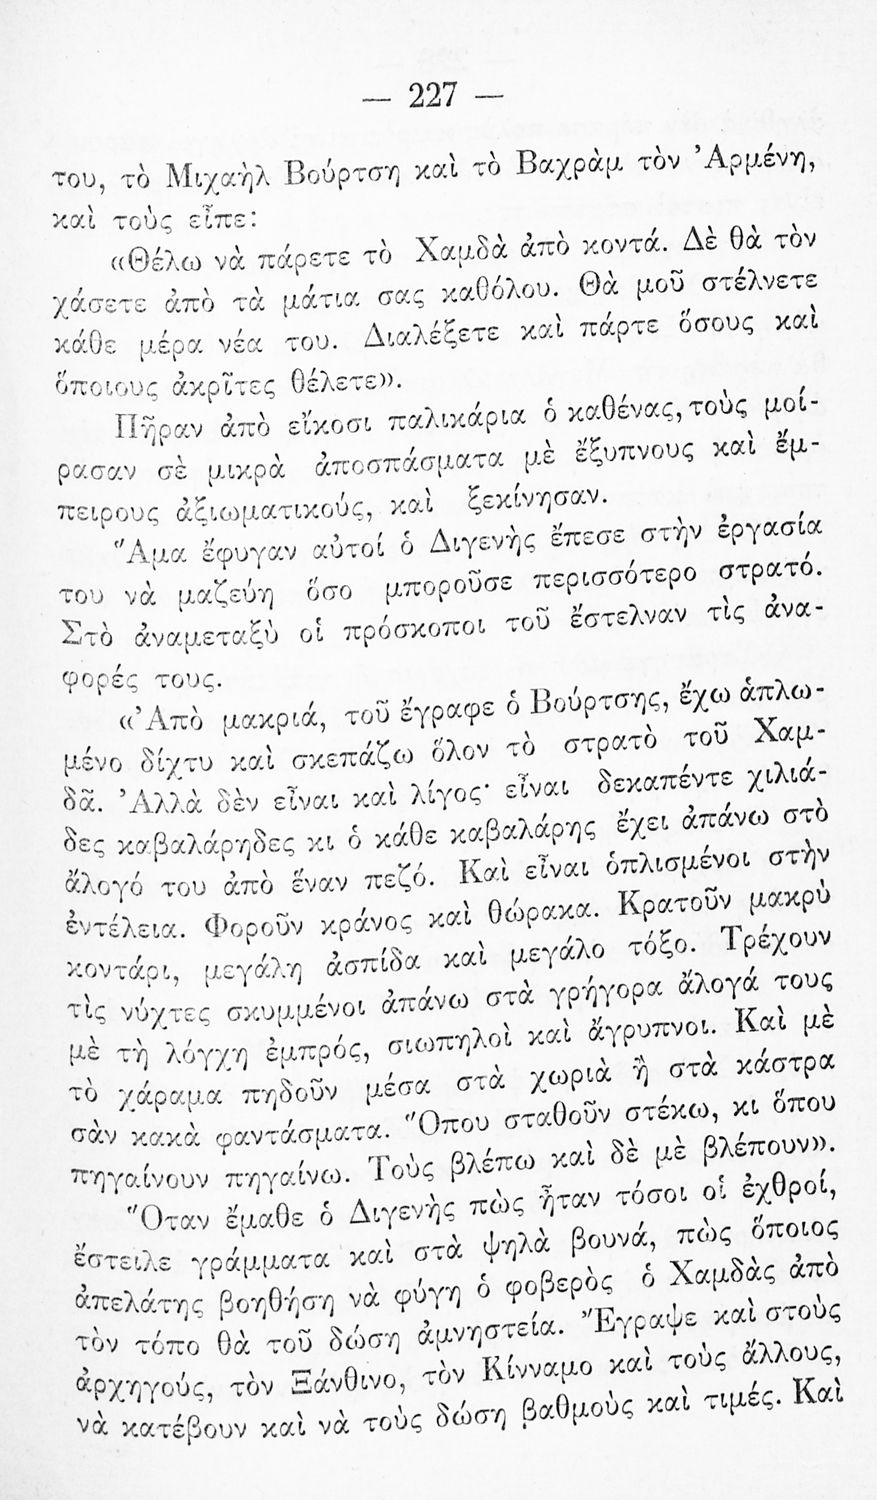 — 227 —
του, τὸ Μιχαὴλ Βούρτση καὶ τὸ Βαχρὰμ τὸν Ἀρμένη,
καὶ τοὺς εἶπε:
«Θέλω νὰ πάρετε τὸ Χαμδὰ ἀπὸ κοντά. Δὲ θὰ τὸν
χάσετε ἀπὸ τὰ μάτια σας καθόλου. Θὰ μοῦ στέλνετε
κάθε μέρα νέα του. Διαλέξετε καὶ πάρτε ὅσους καὶ
ὅποιους ἀκρῖτες θέλετε».
Πῆραν ἀπὸ εἴκοσι παλικάρια ὁ καθένας, τοὺς μοί-
ρασαν σὲ μικρὰ ἀποσπάσματα μὲ ἔξυπνους καὶ ἔμ-
πειρους ἀξιωματικούς, καὶ ξεκίνησαν.
Ἅμα ἔφυγαν αὐτοί ὁ Διγενὴς ἔπεσε στὴν ἐργασία
του νὰ μαζεύη ὅσο μποροῦσε περισσότερο στρατό.
Στὸ ἀναμεταξὺ οἱ πρόσκοποι τοῦ ἔστελναν τὶς ἀνα-
φορές τους.
«Ἀπὸ μακριά, τοῦ ἔγραφε ὁ Βούρτσης, ἔχω ἁπλω-
μένο δίχτυ καὶ σκεπάζω ὅλον τὸ στρατὸ τοῦ Χαμ-
δᾶ. Ἀλλὰ δὲν εἶναι καὶ λίγος· εἶναι δεκαπέντε χιλιά-
δες καβαλάρηδες κι ὁ κάθε καβαλάρης ἔχει ἀπάνω στὸ
ἄλογό του ἀπὸ ἕναν πεζό. Καὶ εἶναι ὁπλισμένοι στὴν
ἐντέλεια. Φοροῦν κράνος καὶ θώρακα. Κρατοῦν μακρὺ
κοντάρι, μεγάλη ἀσπίδα καὶ μεγάλο τόξο. Τρέχουν
τὶς νύχτες σκυμμένοι ἀπάνω στὰ γρήγορα ἄλογά τους
μὲ τὴ λόγχη ἐμπρός, σιωπηλοὶ καὶ ἄγρυπνοι. Καὶ μὲ
τὸ χάραμα πηδοῦν μέσα στὰ χωριὰ ἢ στὰ κάστρα
σὰν κακὰ φαντάσματα. Ὅπου σταθοῦν στέκω, κι ὅπου
πηγαίνουν πηγαίνω. Τοὺς βλέπω καὶ δὲ μὲ βλέπουν».
Ὅταν ἔμαθε ὁ Διγενὴς πὼς ἦταν τόσοι οἱ ἐχθροί,
ἔστειλε γράμματα καὶ στὰ ψηλὰ βουνά, πὼς ὅποιος
ἀπελάτης βοηθήση νὰ φύγη ὁ φοβερὸς ὁ Χαμδὰς ἀπὸ
τὸν τόπο θὰ τοῦ δώση ἀμνηστεία. Ἔγραψε καὶ στοὺς
ἀρχηγούς, τὸν Ξάνθινο, τὸν Κίνναμο καὶ τοὺς ἄλλους,
νὰ κατέβουν καὶ νὰ τοὺς δώση βαθμοὺς καὶ τιμές. Καὶ